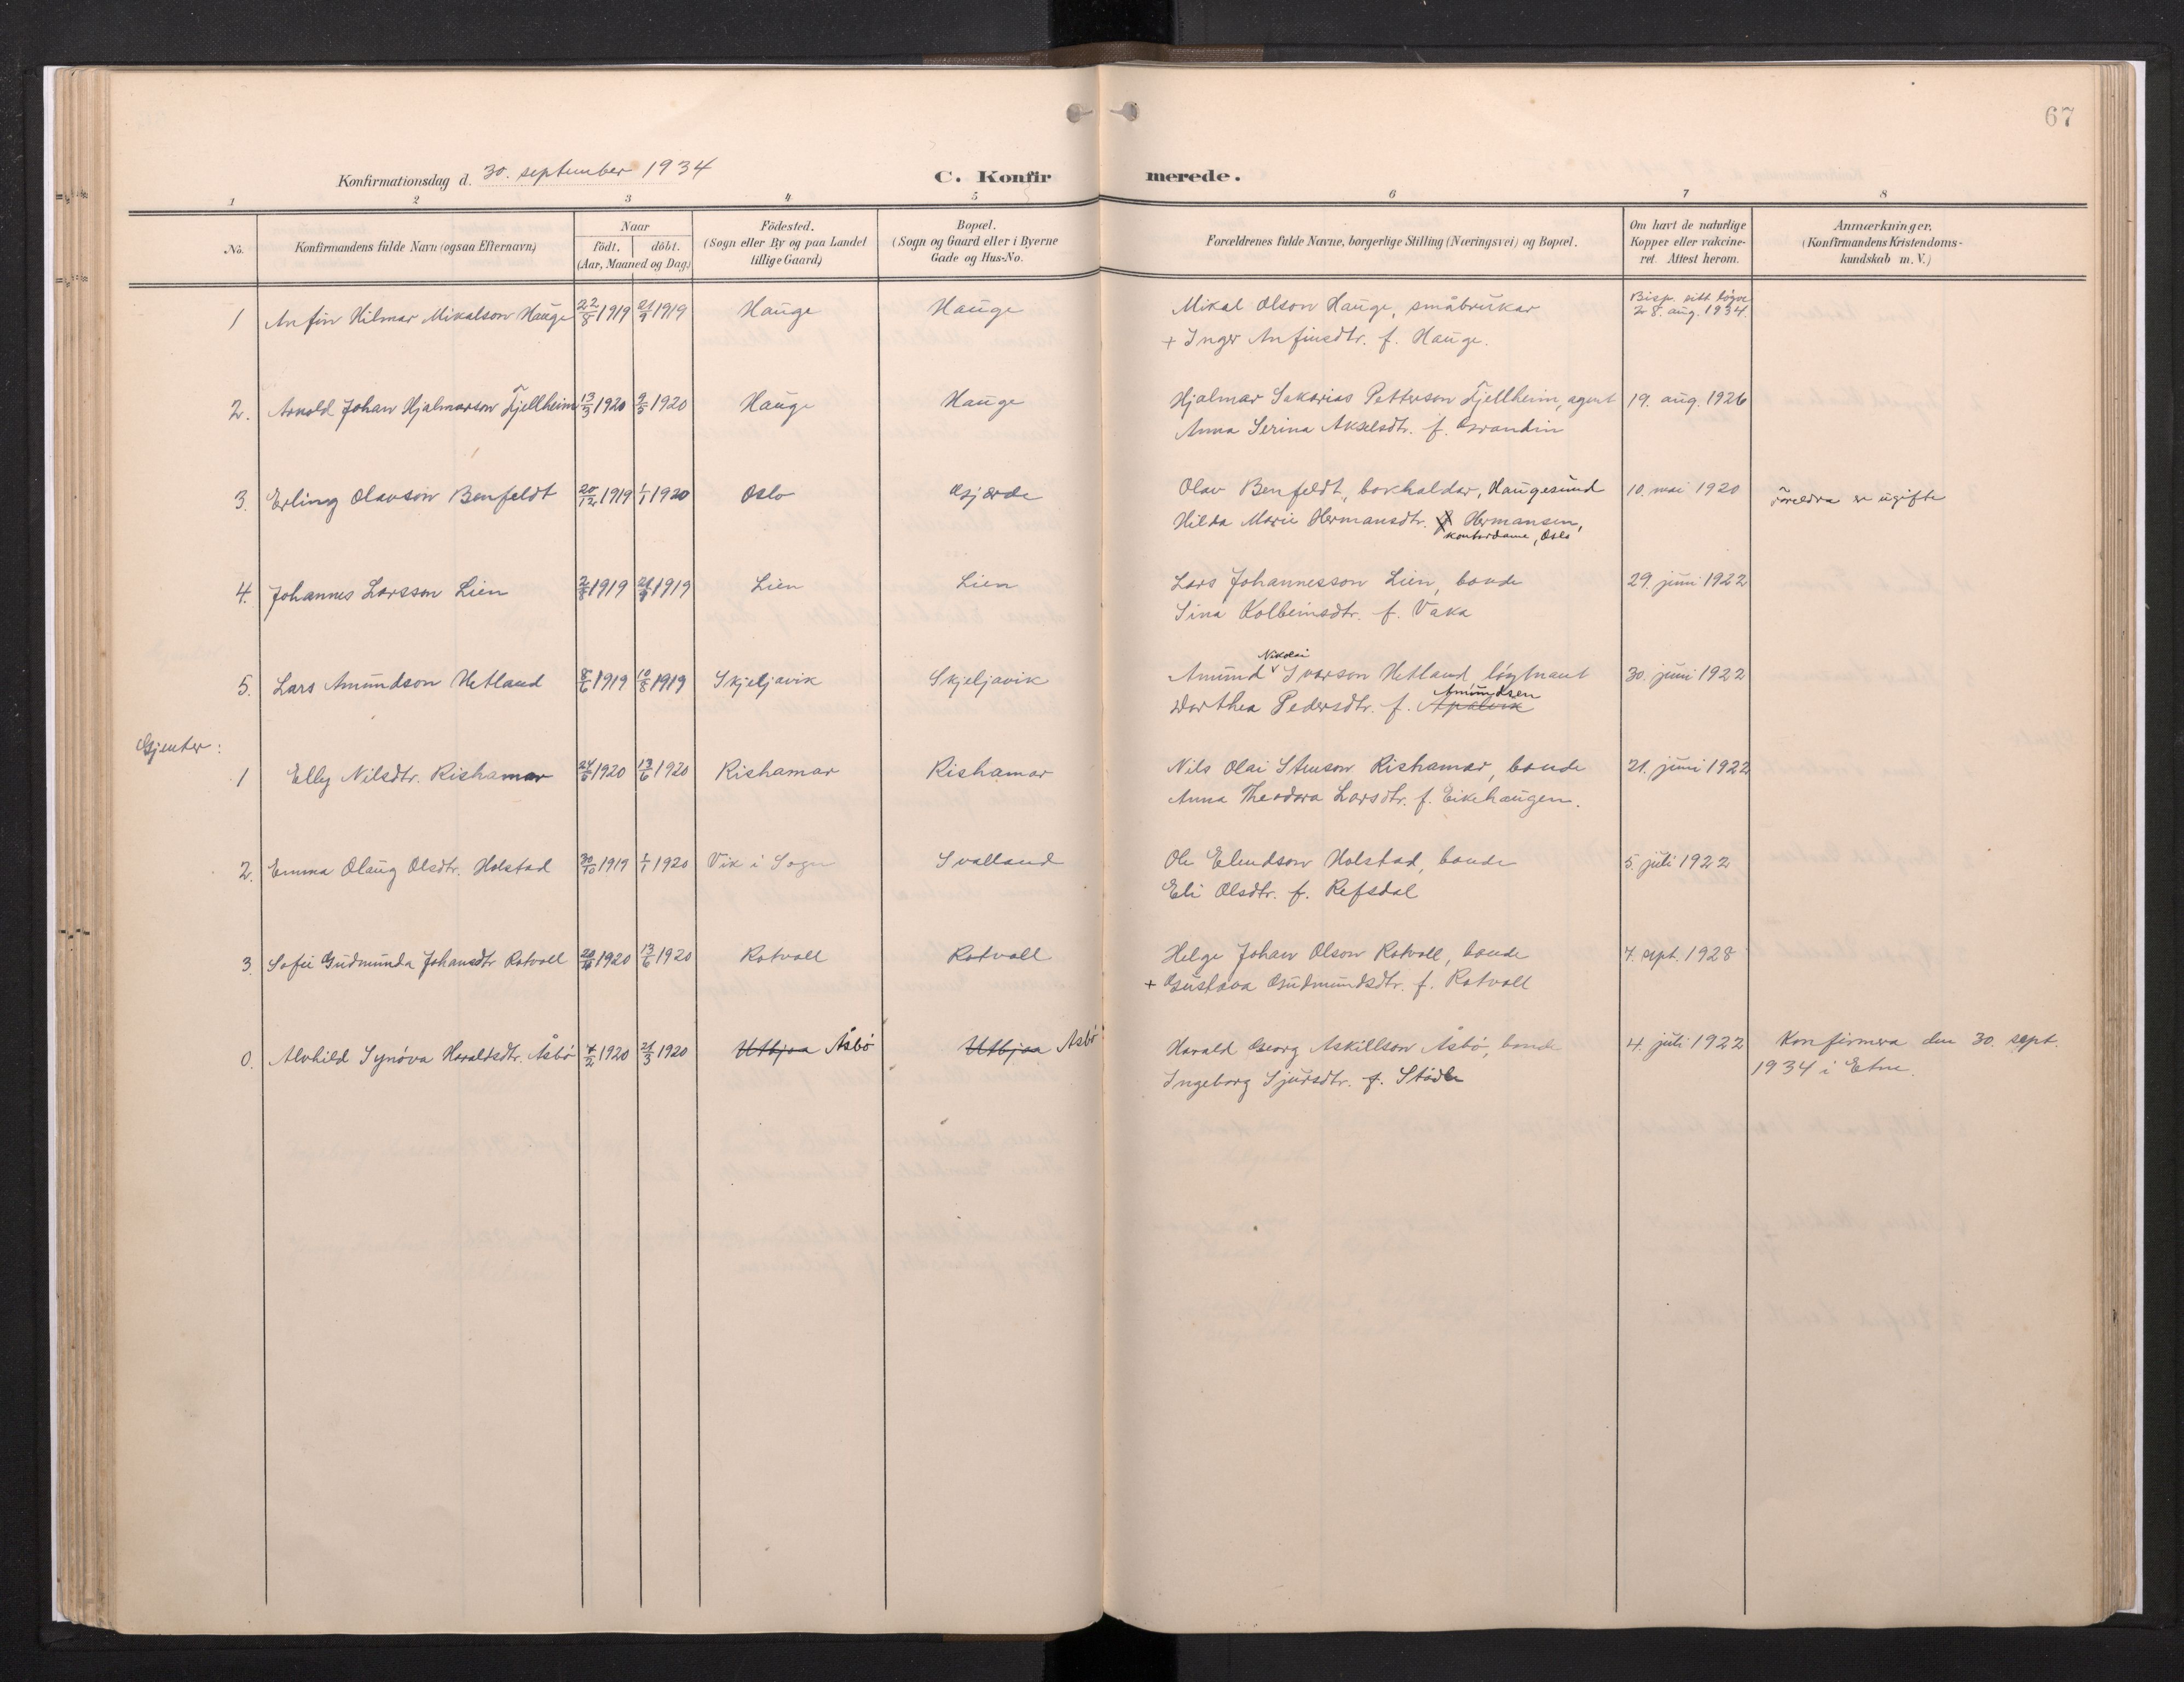 67
Konfirmationsdag d. 30. september 1934
C. Konfirmerede.
1 2 3 4 5 6 7 8
No.
Konfirmandens fulde Navn (ogsaa Efternavn)
Naar
födt. döbt.
(Aar, Maaned og Dag)
Födested.
(Sogn eller By og paa Landet
tillige Gaard)
Bopæl.
(Sogn og Gaard eller i Byerne
Gade og Hus-No.
Forældrenes fulde Navne, borgerlige Stilling (Næringsvei) og Bopæl.
Om havt de naturlige
Kopper eller vakcine-
ret. Attest herom.
Anmærkninger.
(Konfirmandens Kristendoms-
kundskab m. V.)
1 Anfin Hilmar Mikalson Hauge 22/8 1919 21/9 1919 Hauge Hauge Mikal Olson Hauge, småbrukar Bisp. sitt løyve
28. aug. 1934.
+ Inger Anfinsdtr. f. Hauge.
2. Arnold Johan Hjalmarson Fjellheim 13/3 1920 9/5 1920 Hauge Hauge Hjalmar Sakarias Petterson Fjellheim, agent 19. aug. 1926
Anna Serina Akselsdtr. f. Grandin
3. Erling Olavson Benfeldt 20/12 1919 1/1 1920 Oslo Gjærde Olav Benfeldt, bokhaldar, Haugesund 10. mai 1920 Foreldra er ugifte
Hilda Marie Hermansdtr. Hermansen,
kontordame, Oslo
4. Johannes Larsson Lien 2/8 1919 21/9 1919 Lien Lien Lars Johannesson Lien, bonde 29. juni 1922
Sina Kolbeinsdtr. f. Vaka
Nikolai
5. Lars Amundson Hetland 8/6 1919 10/8 1919 Skjeljavik Skjeljavik Amund Ivarson Hetland, løytnant 30. juni 1922
Amundsen
Dorthea Pedersdtr. f. Apalvik
Gjenter:
1 Elly Nilsdtr. Rishamar 24/5 1920 13/6 1920 Rishamar Rishamar Nils Olai Stenson Rishamar, bonde 21. juni 1922
Anna Theodora Larsdtr. f. Eikehaugen.
2. Emma Olaug Olsdtr. Holstad 30/10 1919 1/1 1920 Vik i Sogn Svalland Ole Elendson Holstad, bonde 5. juli 1922
Eli Olsdtr. f. Refsdal
3. Sofie Gudmunda Johansdtr Rotvoll 1920 13/6 1920 Rotvoll Rotvoll Helge Johan Olson Rotvoll, bonde 7. sept. 1928
+ Gustava Gudmundsdtr. f. Rotvoll
0. Alvhild Synøva Haraldsdtr. Åsbø 4/2 1920 21/3 1920 Utbjoa Åsbø Utbjoa Åsbø Harald Georg Askillson Åsbø, bonde 4. juli 1922 Konfirmera den 30. sept.
1934 i Etne.
Ingeborg Sjursdtr. f. Støle